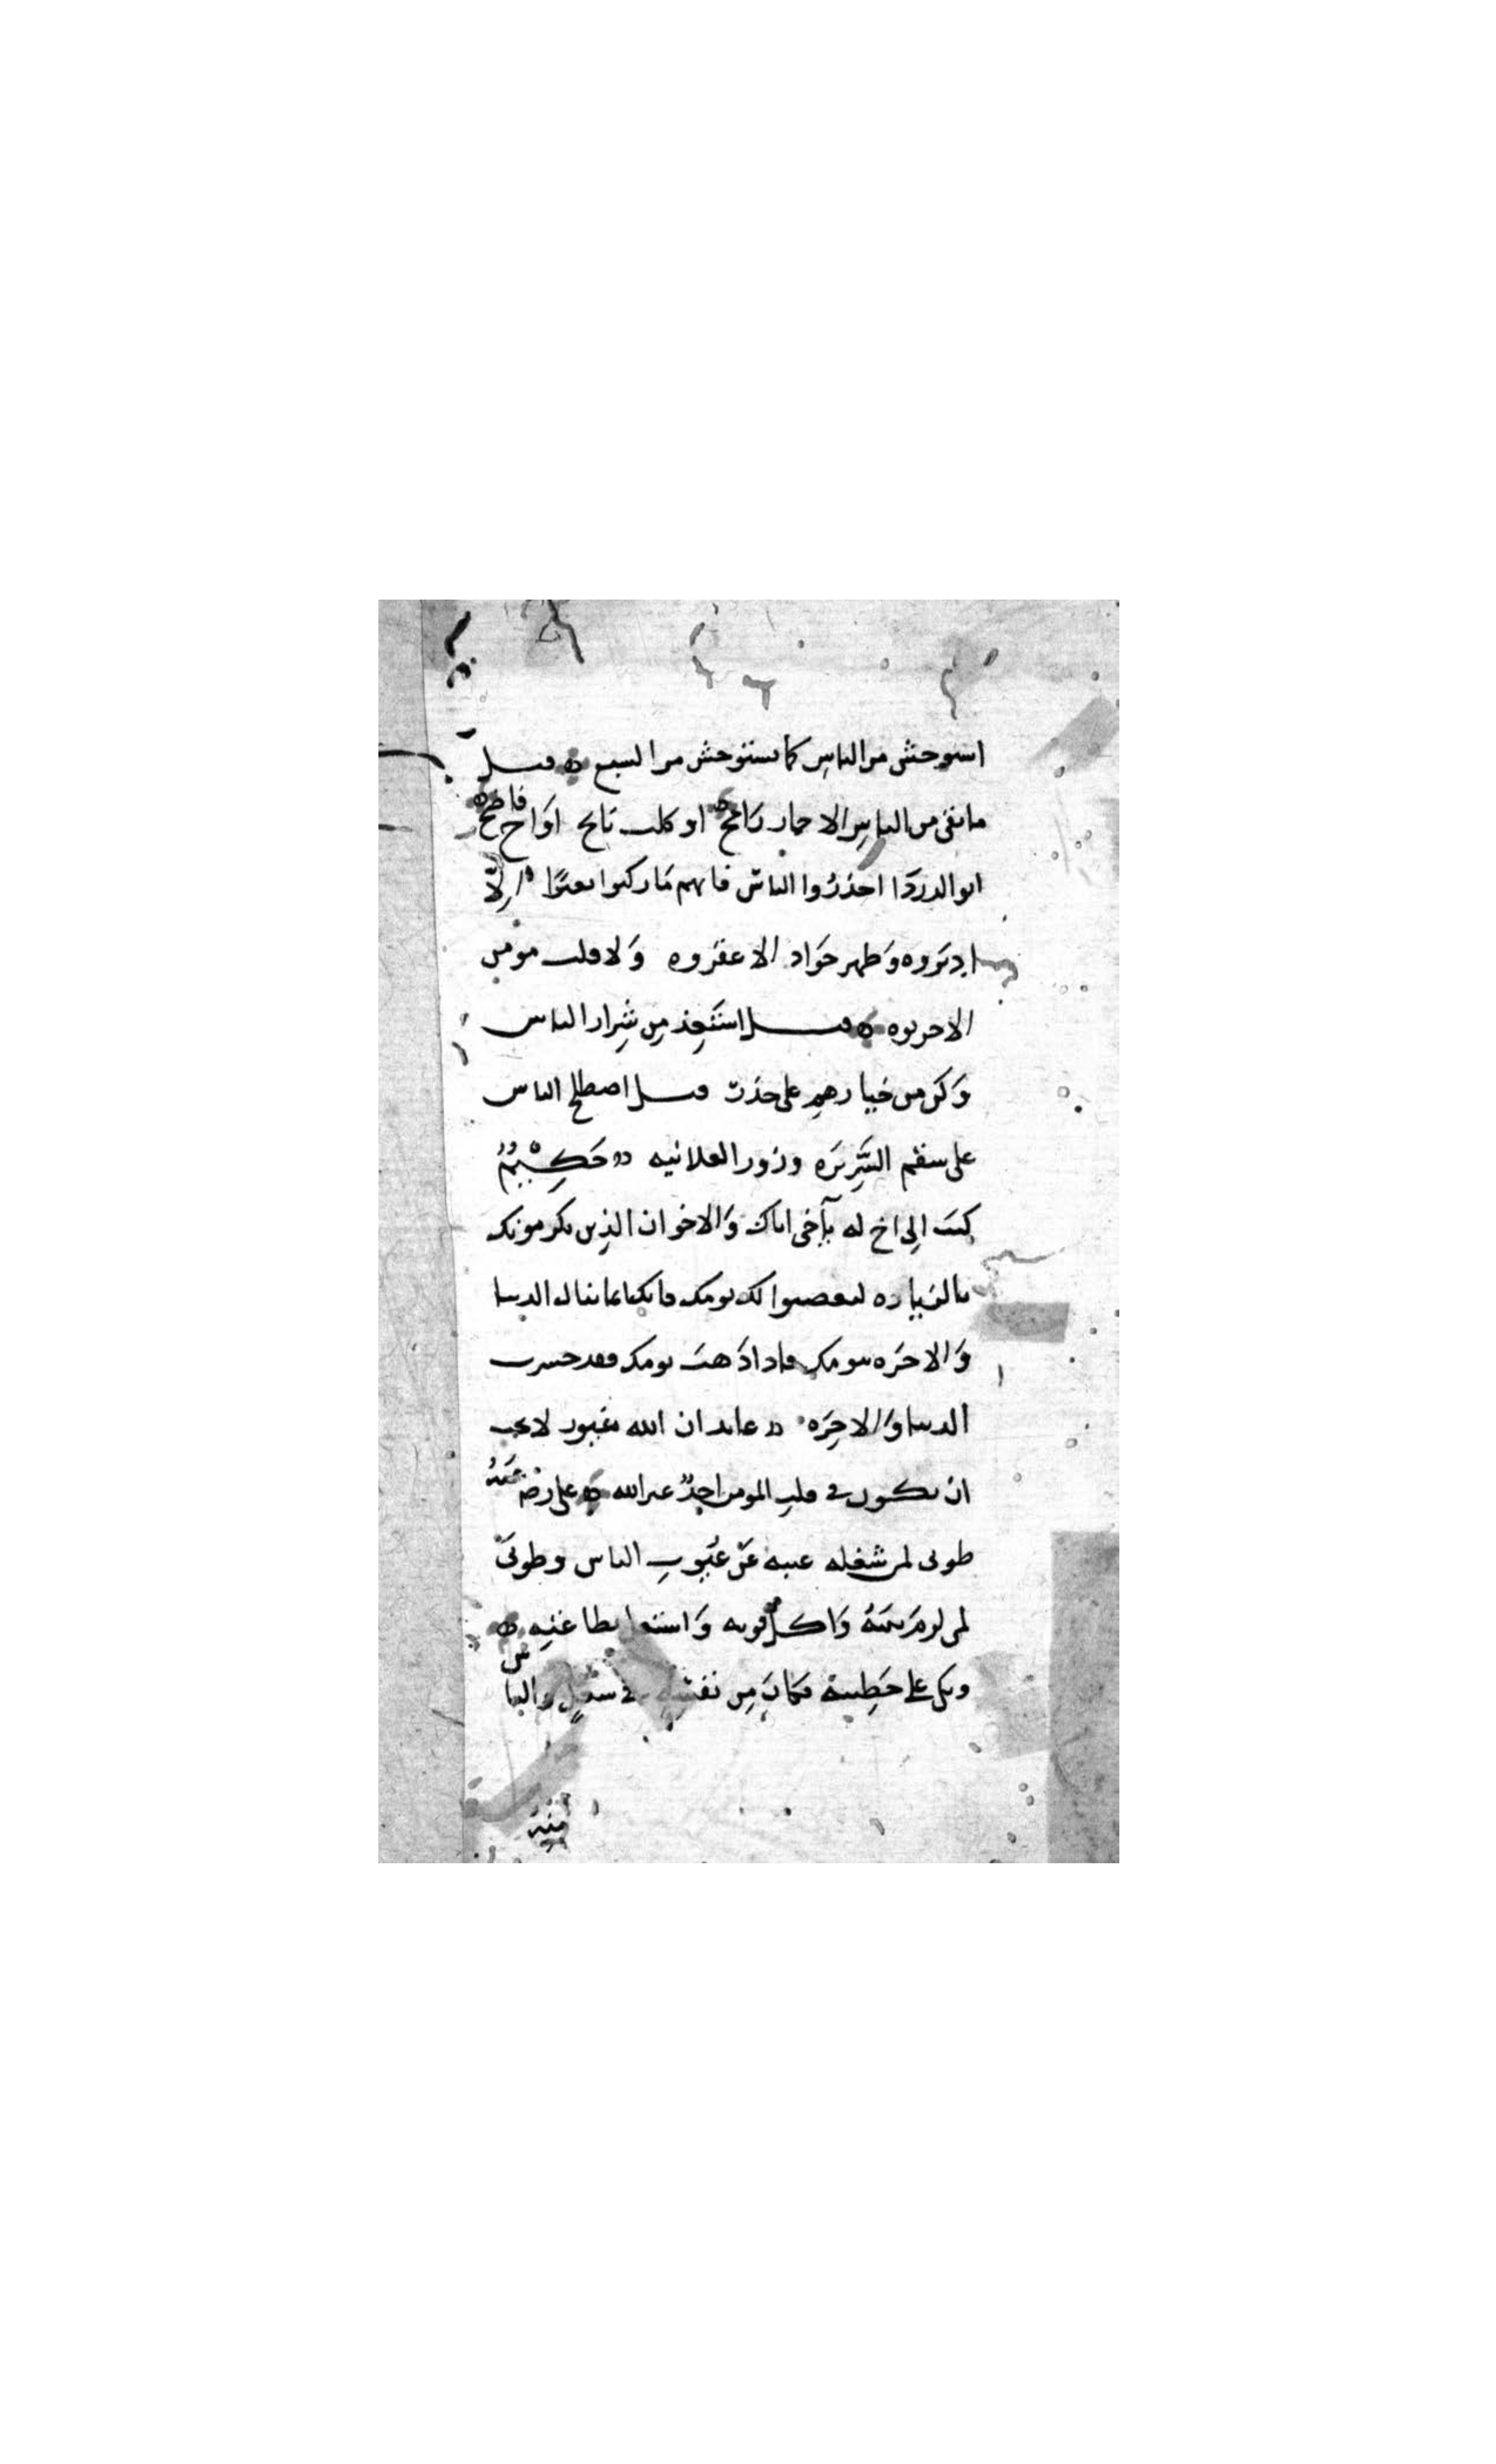 استوحش من الناس كما تستوحش من السبع ه قيل
ما بقي من الناس الا حمار رامح او كلب نابح او اخ فاضح ه
ابو الدردا احذروا الناس فانهم ما ركبوا بعيرا الا
ادبروه وظهر جواد الا عقروه ولا قلب مومن
الا خربوه ه قيل استعِذ مِن شِرار الناس
وَكن من خيارهم على حذر قيل اصطلح الناس
على سقم السَّرِيرَه وزور العلانيه حَكِيْمٌ
كتبَ اِلى اخ له يآخي اياك وَالاخوان الذِين يكرمونك
بالزياره ليغصبوا لك يومك فانك انما تنال الدنيا
وَالاخرَه بيومك فاذا ذَهبَ يومك فقد خسرت
الدنيا وَالاخِرَه عابد ان الله غيور لا يحب
ان يكون في قلبِ المومن احدٌ غير الله ه على رضَ عَنهُ
طوبى لمن شغله عيبه عَن عُيُوبِ الناس وطوبىَ
لمن لزمَ بَيتَهُ وَاكل قوته وَاشتغل بطاعتِه ه
وبكى على خَطِيته فكانَ مِن نفسِهِ في شغلٍ والناس
مِنهُ